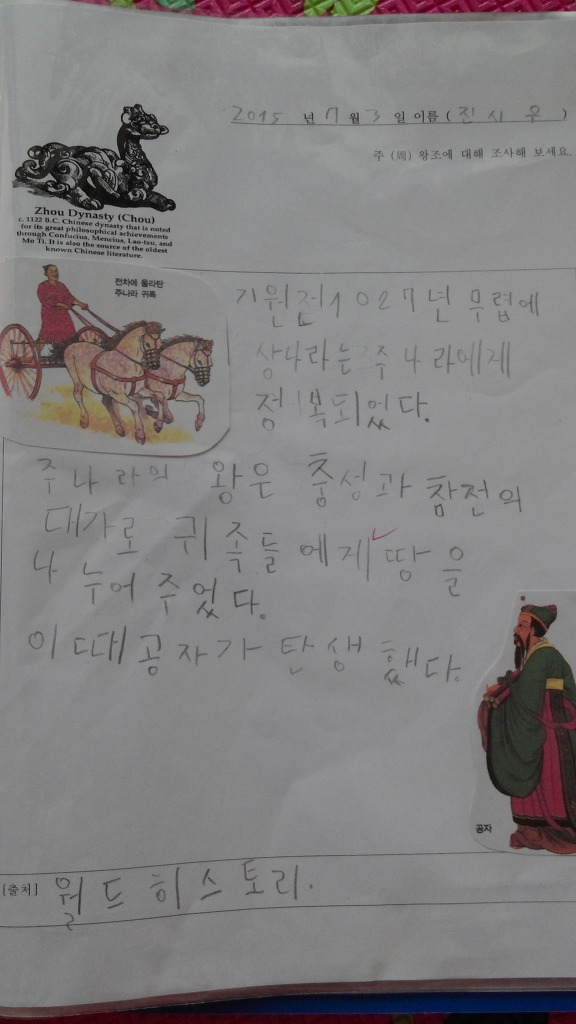 2015 년 7 월 3 일 이름 ( 진 시 우 )
주 (周) 왕조에 대해 조사해 보세요.
Zhou Dynasty (Chou)
c. 1122 B.C. Chinese dynasty that is noted
for its great philosophical achievements
through Confucius, Mencius, Lao-tzu, and
Mo Ti. It is also the source of the oldest
known Chinese literature.
전차에 올라탄
주나라 귀족
기원전 1027년 무렵에
상나라는 주나라에게
정복되었다.
주나라의 왕은 충성과 참전의
대가로 귀족들에게 땅을
나누어 주었다.
이때 공자가 탄생했다.
공자
[출처] 월드히스토리.